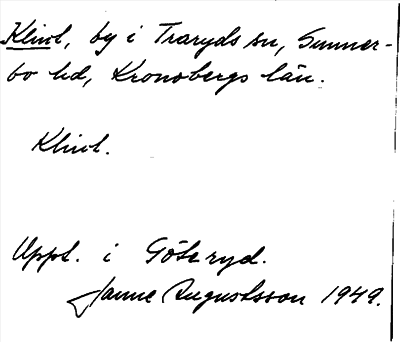 Klint, by i Traryds sn, Sunner-
bo hd, Kronobergs län.
Klint.
Uppt. i Göteryd.
Janne Augustsson 1949.